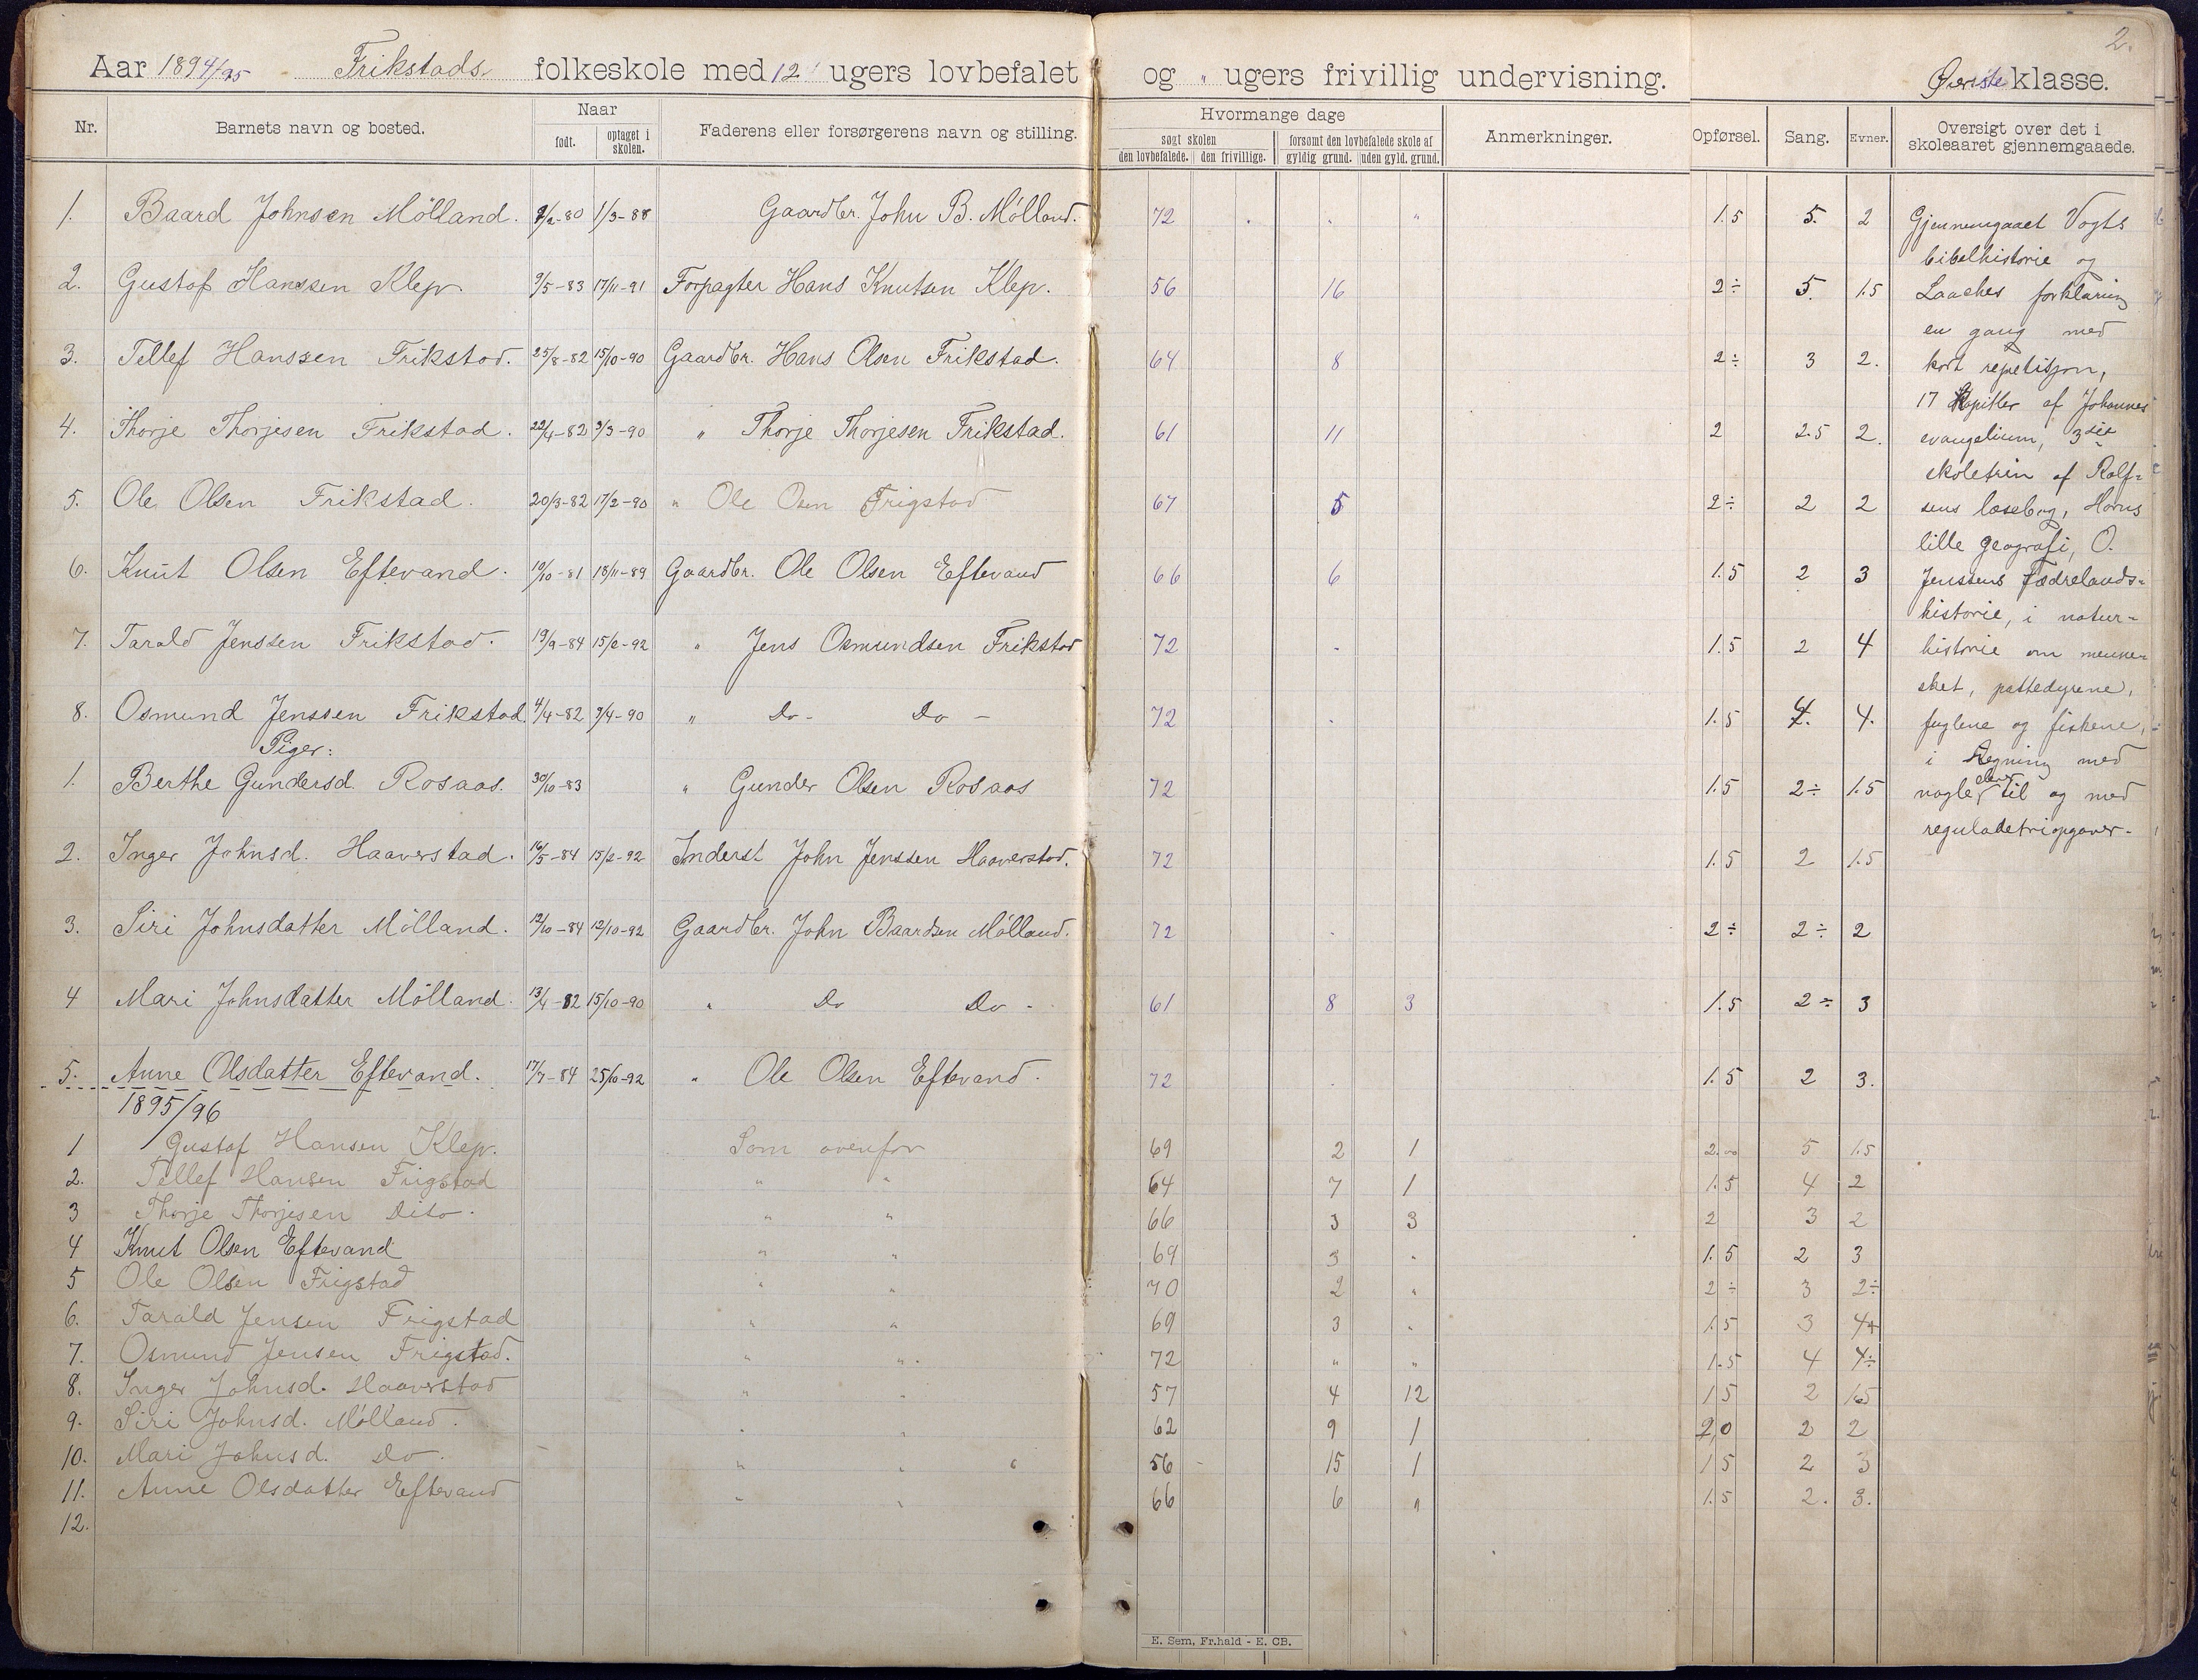 2.
Aar 1894/95 Frikstads folkeskole med 12 ugers lovbefalet og " ugers frivillig undervisning. Øverste klasse.
Nr. Barnets navn og bosted. Naar født. optaget i skolen. Faderens eller forsørgerens navn og stilling. Hvormange dage søgt skolen den lovbefalede. den frivillige. forsømt den lovbefalede skole af gyldig grund. uden gyld. grund. Anmerkninger. Opførsel. Sang. Evner. Oversigt over det i skoleaaret gjennemgaaede.
1. Baard Johnsen Mölland. 9/2-80 1/3-88 Gaardbr. John B. Mölland. 72 . . " 1.5 5. 2 Gjennemgaaet Vogts
bibelhistorie og
2. Gustaf Hanssen Klep. 9/5-83 17/11-91 Forpagter Hans Knutsen Klep. 56 16 2÷ 5. 1.5 Laaches forklaring
en gang med
3. Tellef Hanssen Frikstad. 25/8-82 15/10-90 Gaardbr. Hans Olsen Frikstad. 64 8 2÷ 3 2. kort repetisjon,
17 Kapitler af Johannes
4. Thorje Thorjesen Frikstad. 22/4-82 3/3-90 " Thorje Thorjesen Frikstad. 61 11 2 2.5 2. evangelium, 3die
skoletrin af Rolf=
5. Ole Olsen Frikstad. 20/3-82 17/2-90 " Ole Osen Frigstad 67 5 2÷ 2 2 sens læsebog, Horns
lille geografi, O.
6. Knut Olsen Eftevand. 10/10-81 18/11-89 Gaardbr. Ole Olsen Eftevand 66 6 1.5 2 3 Jenssens Fædrelands=
historie, i natur=
7. Tarald Jenssen Frikstad. 19/9-84 15/2-92 " Jens Osmundsen Frikstad 72 . 1.5 2 4 historie om menne=
sket, pattedyrene,
8. Osmund Jenssen Frikstad. 4/4-82 9/4-90 " Do - Do - 72 . 1.5 4. 4. fuglene og fiskene,
Piger: i Regning med
1. Berthe Gundersd. Rosaas. 30/10-83 " Gunder Olsen Rosaas 72 1.5 2÷ 1.5 nogle elever til og med
reguladetriopgaver.
2. Inger Johnsd. Haaverstad. 16/5-84 15/2-92 Inderst John Jenssen Haaverstad. 72 1.5 2 1.5
3. Siri Johnsdatter Mölland. 12/10-84 12/10-92 Gaardbr. John Baardsen Mölland. 72 . 2÷ 2÷ 2
4 Mari Johnsdatter Mölland. 13/4-82 15/10-90 " Do Do - 61 8 3 1.5 2÷ 3
5. Anne Olsdatter Eftevand. 17/7-84 25/10-92 " Ole Olsen Eftevand. 72 . 1.5 2 3.
1895/96
1 Gustaf Hansen Klep. Som ovenfor 69 2 1 5 1.5
2. Tellef Hansen Frigstad " " 64 7 1 1.5 4 2
3 Thorje Thorjesen Dito. " " 66 3 3 2 3 2
4 Knut Olsen Eftevand " " 69 3 " 1.5 2 3
5 Ole Olsen Frigstad " " 70 2 " 2÷ 3 2÷
6. Tarald Jensen Frigstad " " 69 3 " 1.5 3 4+
7. Osmund Jensen Frigstad. " " 72 " " 1.5 4 4÷
8. Inger Johnsd. Haaverstad " " 57 4 12 1.5 2 1.5
9. Siri Johnsd. Mölland. " " 62 9 1 2,0 2 2
10. Mari Johnsd. Do. " " " 56 15 1 1.5 2 3
11. Anne Olsdatter Eftevand " " 66 6 " 1.5 2. 3.
12.
E. Sem, Fr.hald - E. CB.